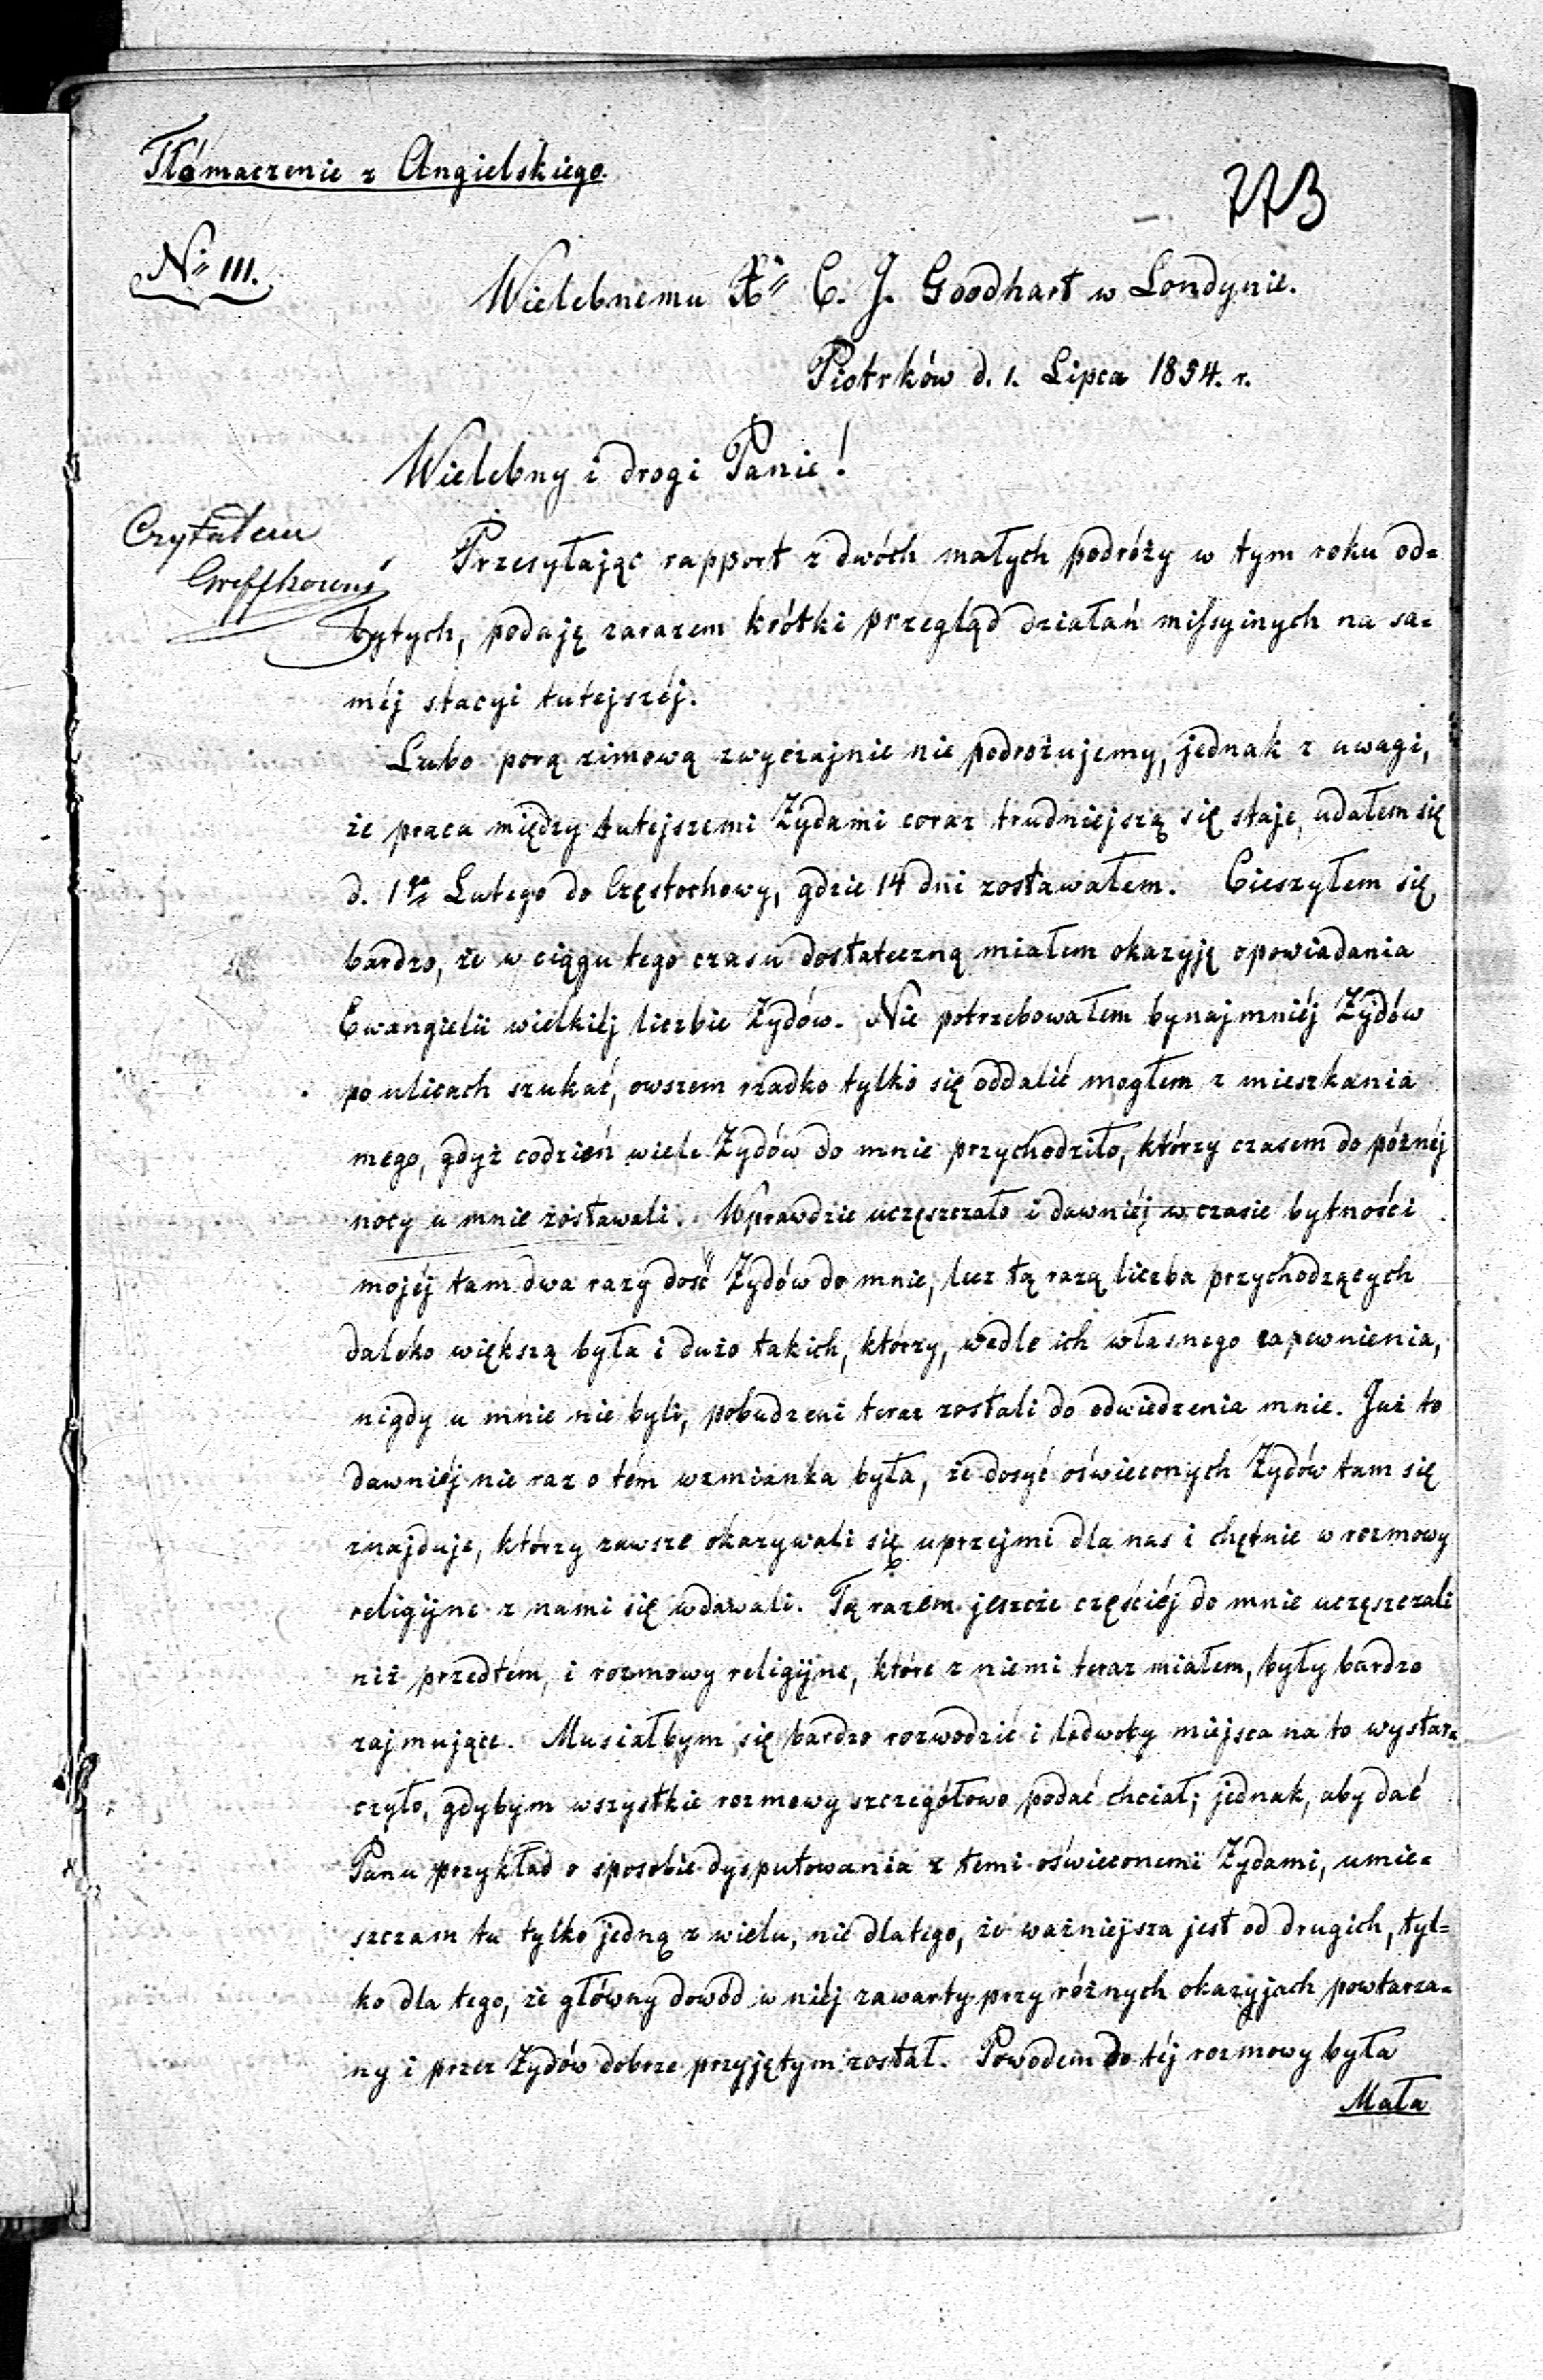 Tłómaczenie z Angielskiego.
773
No III.
Wielebnemu Xu C. J. Goodhart w Londynie.
Piotrków d. 1. Lipca 1854. r.
Wielebny i drogi Panie!
Czytałem
Przesyłając rapport z dwóch małych podróży w tym roku od=
bytych, podaję zarazem krótki przegląd działań missyinych na sa=
méj stacyi tutejszéj.
Lubo porą zimową zwyczajnie nie podrożujemy, jednak z uwagi,
że praca między tutejszemi Żydami coraz trudniejszą się staje, udałem się
d. 1go Lutego do Częstochowy, gdzie 14 dni zostawałem. Cieszyłem się
bardzo, że w ciągu tego czasu dostateczną miałem okazyję opowiadania
Ewangielii wielkiéj liczbie Żydów. Nie potrzebowałem bynajmniéj Żydów
po ulicach szukać, owszem rzadko tylko się oddalić mogłem z mieszkania
mego, gdyż codzień wiele Żydów do mnie przychodziło, którzy czasem do póżnéj
nocy u mnie zostawali. Wprawdzie uczęszczało i dawniéj w czasie bytności
mojéj tam dwa razy dość Żydów do mnie, lecz tą razą liczba przychodzących
daleko większą była i dużo takich, którzy, wedle ich własnego zapewnienia,
nigdy u mnie nie byli, pobudzeni teraz zostali do odwiedzenia mnie. Już to
dawniéj nie raz o tém wzmianka była, że dosyć oświeconych Żydów tam się
znajduje, którzy zawsze okazywali się uprzejmi dla nas i chętnie w rozmowy
religijne z nami się wdawali. Tą razem jeszcze częściéj do mnie uczęszczali
niż przedtém, i rozmowy religijne, które z niemi teraz miałem, były bardzo
zajmujące. Musiałbym się bardzo rozwodzić i ledwoby miejsca na to wystar=
czyło, gdybym wszystkie rozmowy szczegółowo podać chciał; jednak, aby dać
Panu przykład o sposobie dysputowania z temi oświeconemi Żydami, umie=
szczam tu tylko jedną z wielu, nie dlatego, że ważniejsza jest od drugich, tyl=
ko dla tego, że główny dowód w niéj zawarty przy różnych okazyjach powtarza=
ny i przez Żydów dobrze przyjętym został. Powodem do téj rozmowy była
Mała